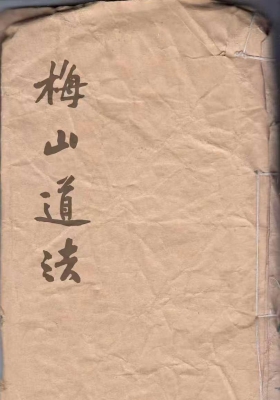 梅山道法